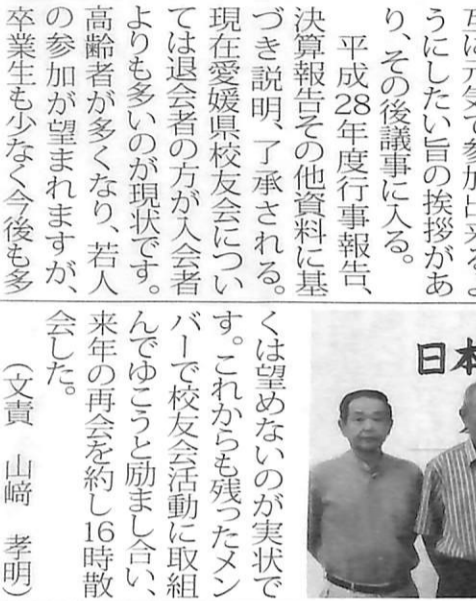 うにしたい旨の挨拶があ
り、その後議事に入る。
平成28年度行事報告、
決算報告その他資料に基
づき説明、了承される。
現在愛媛県校友会につい
ては退会者の方が入会者
よりも多いのが現状です。
高齢者が多くなり、若人
の参加が望まれますが、
卒業生も少なく今後も多
くは望めないのが実状で
す。これからも残ったメン
バーで校友会活動に取組
んでゆこうと励まし合い、
来年の再会を約し16時散
会した。
（文責　山﨑　孝明）
日本